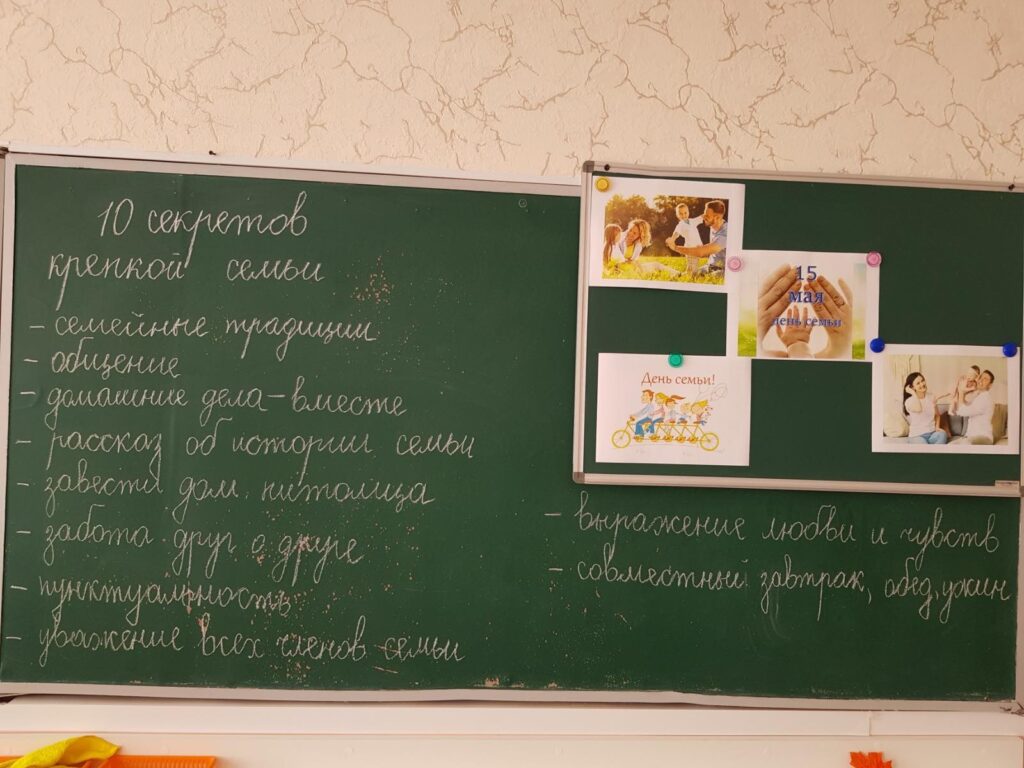 10 секретов
крепкой семьи
- семейные традиции
- общение
- домашние дела - вместе
- рассказ об истории семьи
- завести дом. питомица
- забота друг о друге
- пунктуальность
- уважение всех членов семьи
- выражение любви и чувств
- совместный завтрак, обед, ужин
15
мая
день семьи
День семьи!